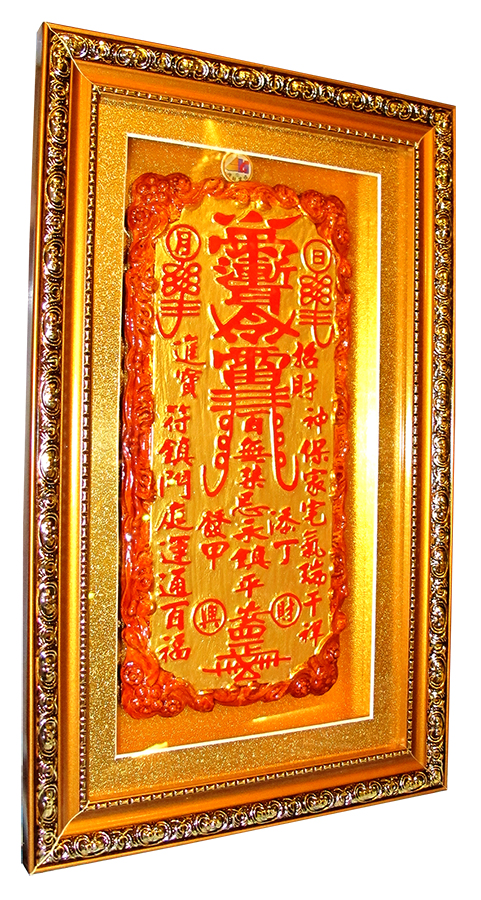 日
月
招財
進寶
神保家宅氣瑞千祥
百無禁忌永鎮平安
符鎮門庭運通百福
添丁
發甲
財
興